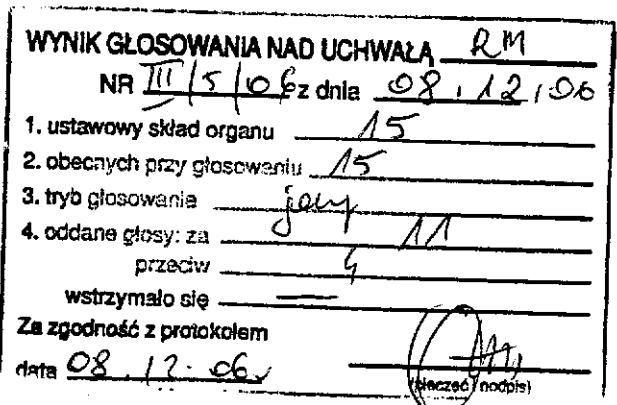 WYNIK GŁOSOWANIA NAD UCHWAŁĄ RM
NR III/5/06 z dnia 08.12.06
1. ustawowy skład organu 15
2. obecnych przy głosowaniu 15
3. tryb głosowanie jawny
4. oddane głosy: za 11
przeciw 4
wstrzymało się —
Za zgodność z protokołem
data 08.12.06
(pieczęć i podpis)